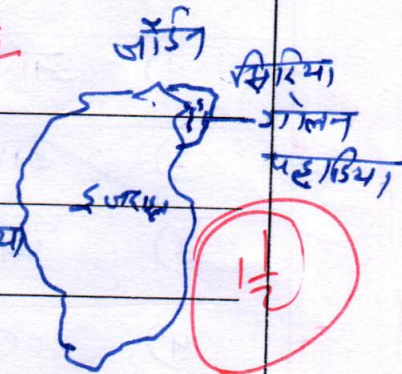 जॉर्डन
सिरिया
गोलन
पहाडिया
इजराइल
या
1½